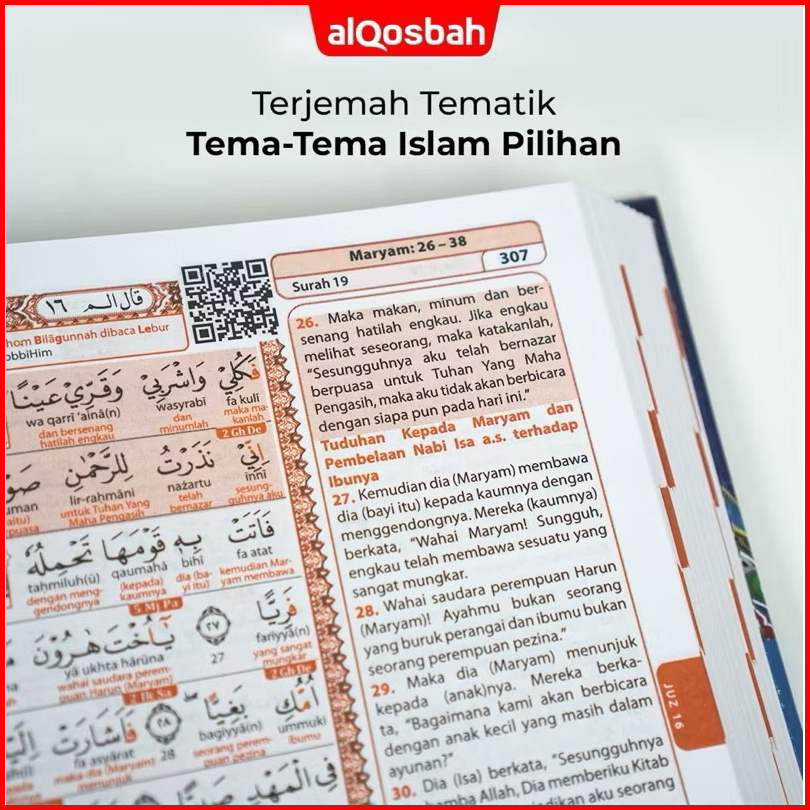 alQosbah
Terjemah Tematik
Tema-Tema Islam Pilihan
Maryam: 26 – 38
Surah 19
307
قال الم ١٦
hom Bilāgunnah dibaca Lebur
obbiHim
فَكُلِيْ وَاشْرَبِيْ وَقَرِّيْ عَيْنًا
fa kulī wasyrabī wa qarrī ‘ainā(n)
maka ma-kanlah dan minumlah dan bersenang hatilah engkau
2 Gh De
اِنِّيْ نَذَرْتُ لِلرَّحْمٰنِ صَوْ
innī nażartu lir-raḥmāni uman
sesung-guhnya aku telah bernazar untuk Tuhan Yang Maha Pengasih aitu) puasa
فَاَتَتْ بِهٖ قَوْمَهَا تَحْمِلُهٗ
fa atat bihī qaumahā taḥmiluh(ū)
kemudian Mar-yam membawa dia (ba-yi itu) (kepada) kaumnya dengan meng-gendongnya
5 Mj Pa
فَرِيًّا ٢٧ يٰٓاُخْتَ هٰرُوْنَ
fariyyā(n) 27 yā ukhta hārūna
yang sangat mungkar wahai saudara perem-puan Harun (Maryam)
2 Gh De
2 Ik Sa
اُمُّكِ بَغِيًّا ٢٨ فَاَشَارَتْ اِلَيْ
ummuki bagiyyā(n) 28 fa asyārat
ibumu seorang perem-puan pezina maka dia (Maryam) menunjuk
فِى الْمَهْدِ
26. Maka makan, minum dan ber-
senang hatilah engkau. Jika engkau
melihat seseorang, maka katakanlah,
“Sesungguhnya aku telah bernazar
berpuasa untuk Tuhan Yang Maha
Pengasih, maka aku tidak akan berbicara
dengan siapa pun pada hari ini.”
Tuduhan Kepada Maryam dan
Pembelaan Nabi Isa a.s. terhadap
Ibunya
27. Kemudian dia (Maryam) membawa
dia (bayi itu) kepada kaumnya dengan
menggendongnya. Mereka (kaumnya)
berkata, “Wahai Maryam! Sungguh,
engkau telah membawa sesuatu yang
sangat mungkar.
28. Wahai saudara perempuan Harun
(Maryam)! Ayahmu bukan seorang
yang buruk perangai dan ibumu bukan
seorang perempuan pezina.”
29. Maka dia (Maryam) menunjuk
kepada (anak)nya. Mereka berka-
ta, “Bagaimana kami akan berbicara
dengan anak kecil yang masih dalam
ayunan?”
30. Dia (Isa) berkata, “Sesungguhnya
amba Allah, Dia memberiku Kitab
dikan aku seorang
JUZ 16